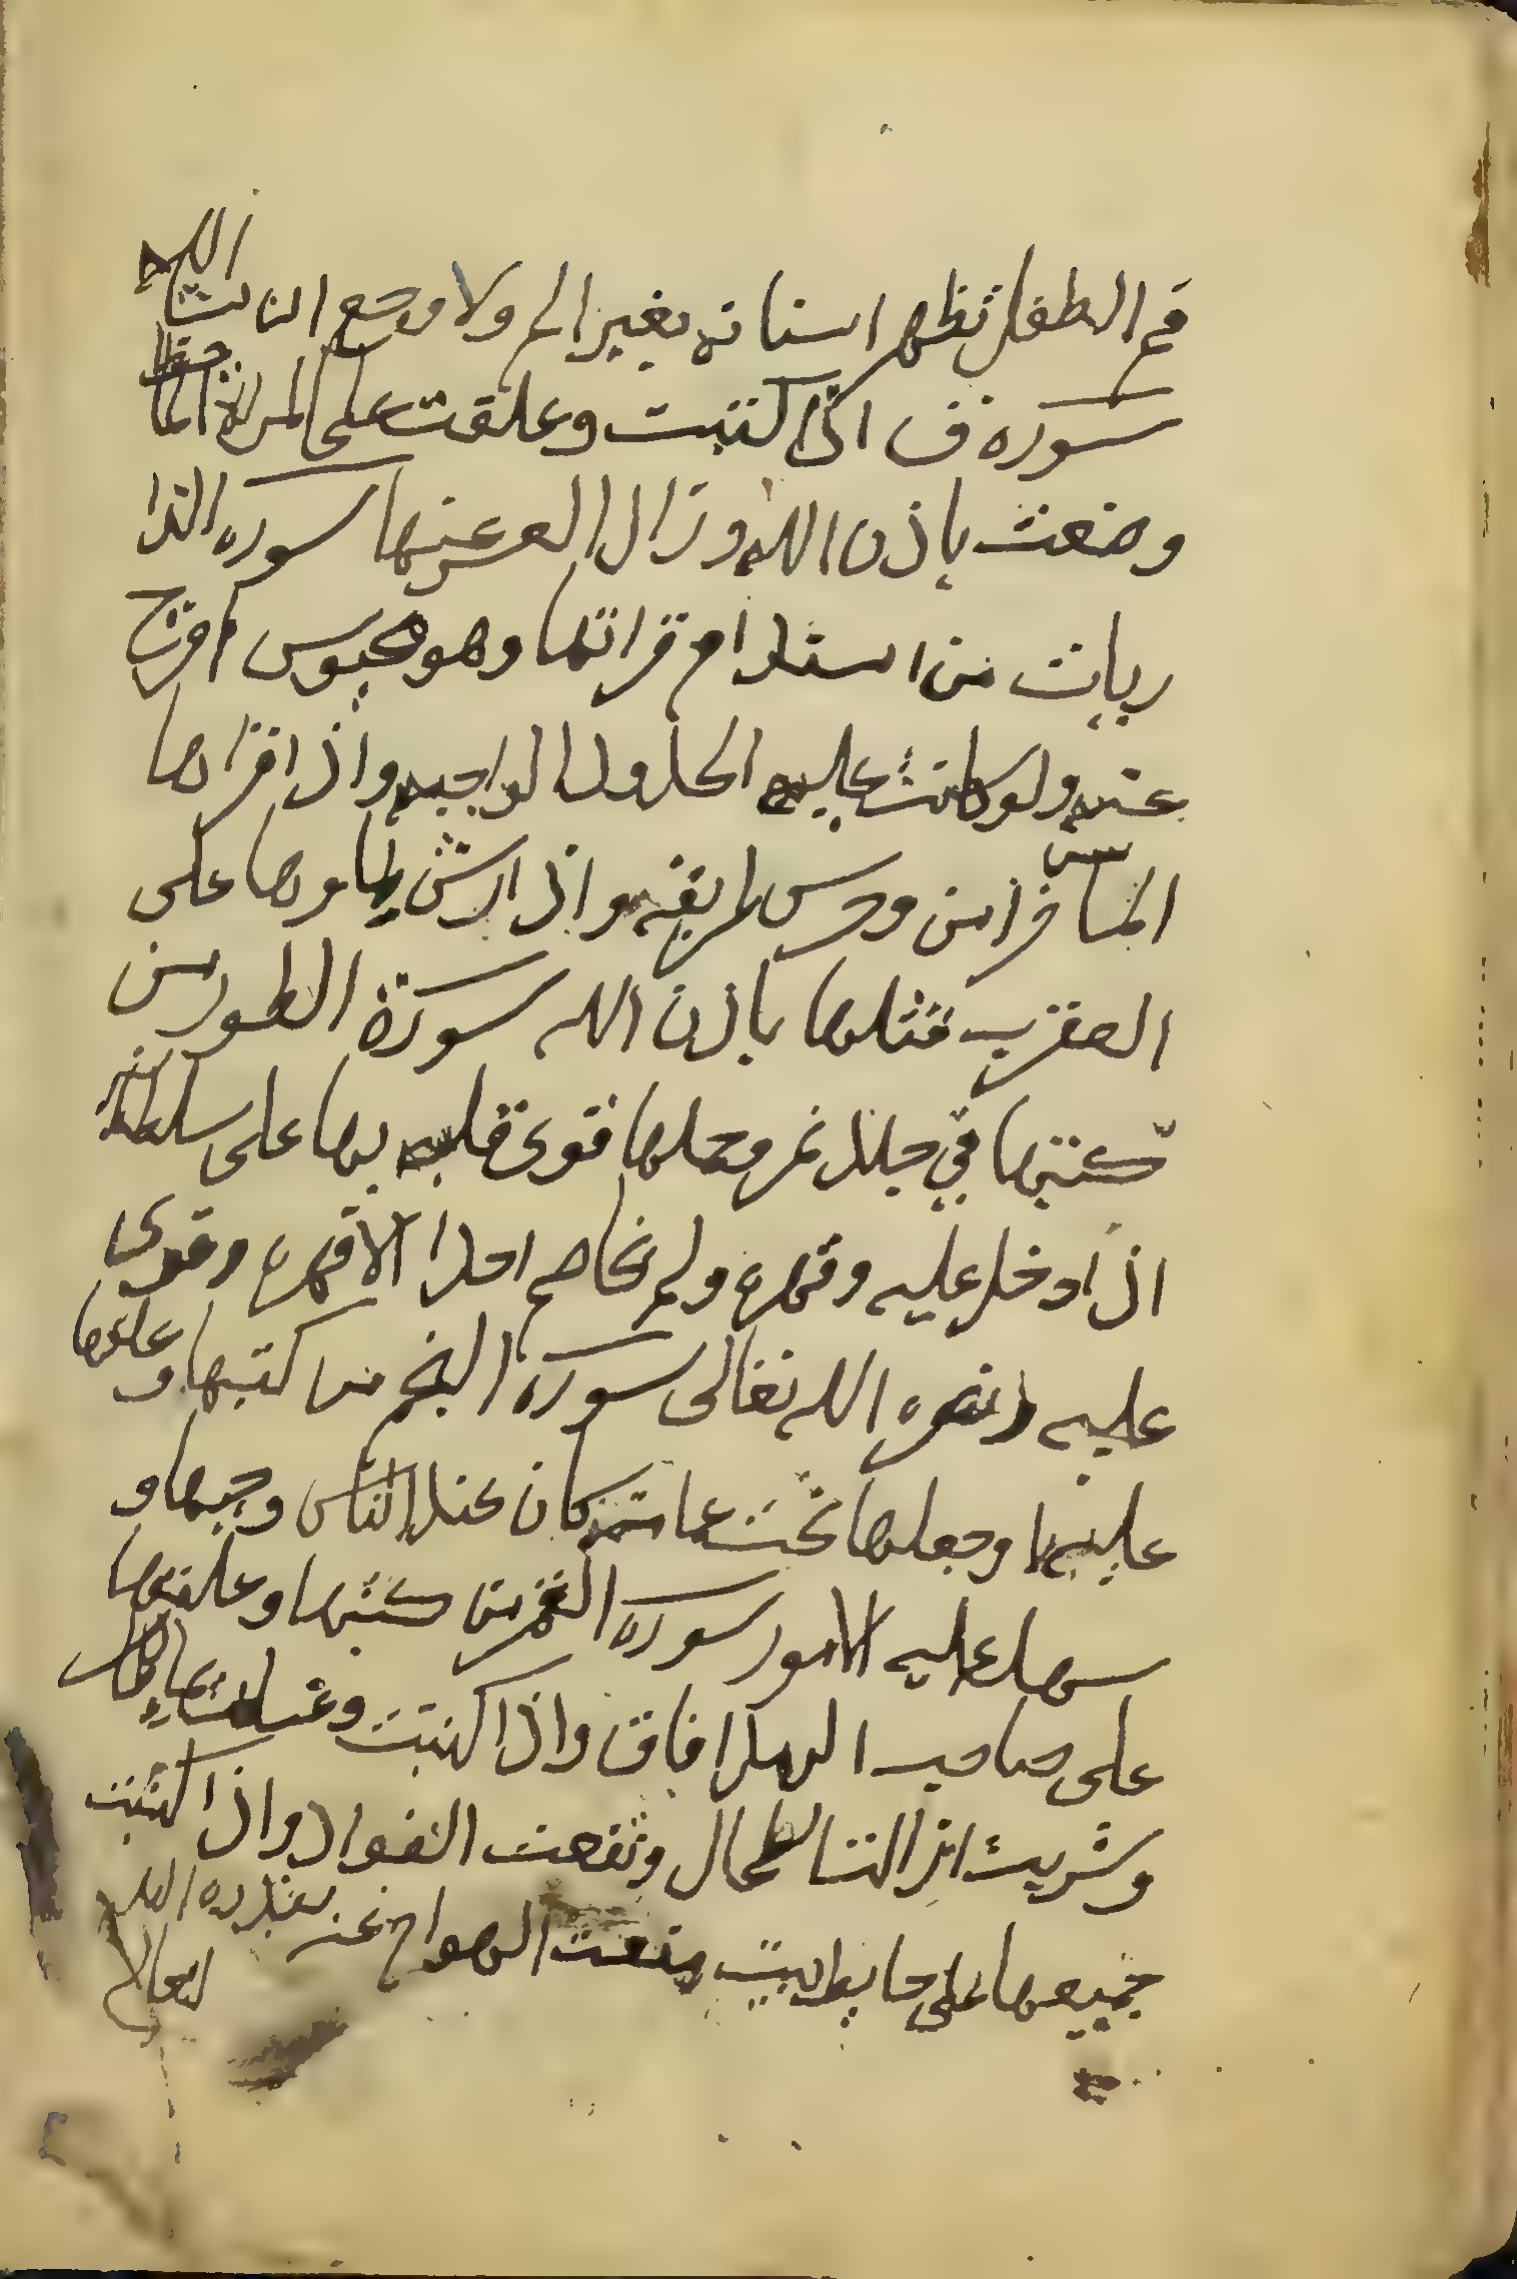 فم الطفل تظهر اسنانه بغير الم ولا وجع ان شا الله
سورة ق اذا كتبت وعلقت على المراة
وضعت باذن الله وزال العسر عنها سورة الذا
ريات من استدام قراتها وهو محبوس افرج
عنه ولو كانت عليه الحدود الواجبه واذا قراها
المسافر امن وحرس طريقه واذا رش بماوها على
العقرب قتلها باذن الله سورة الطور من
كتبها في جلد نمر وحملها قوى قلبه بها على سلطان
اذا دخل عليه وقهره ولم يخاصم احدا الا قهره وقوى
عليه ونصره الله تعالى سورة النجم من كتبها و
عليه وجعلها تحت عمامته كان عند الناس وجيها و
سهل عليه الامور سورة القمر من كتبها وعلقها
على صاحب الرمد افاق واذا كتبت وغسلت بماء
وشربت ازالت الطحال ونفعت الفواد واذا كتبت
جميعها على حايط البيت منعت الهوام عنه بقدرة الله
تعالى